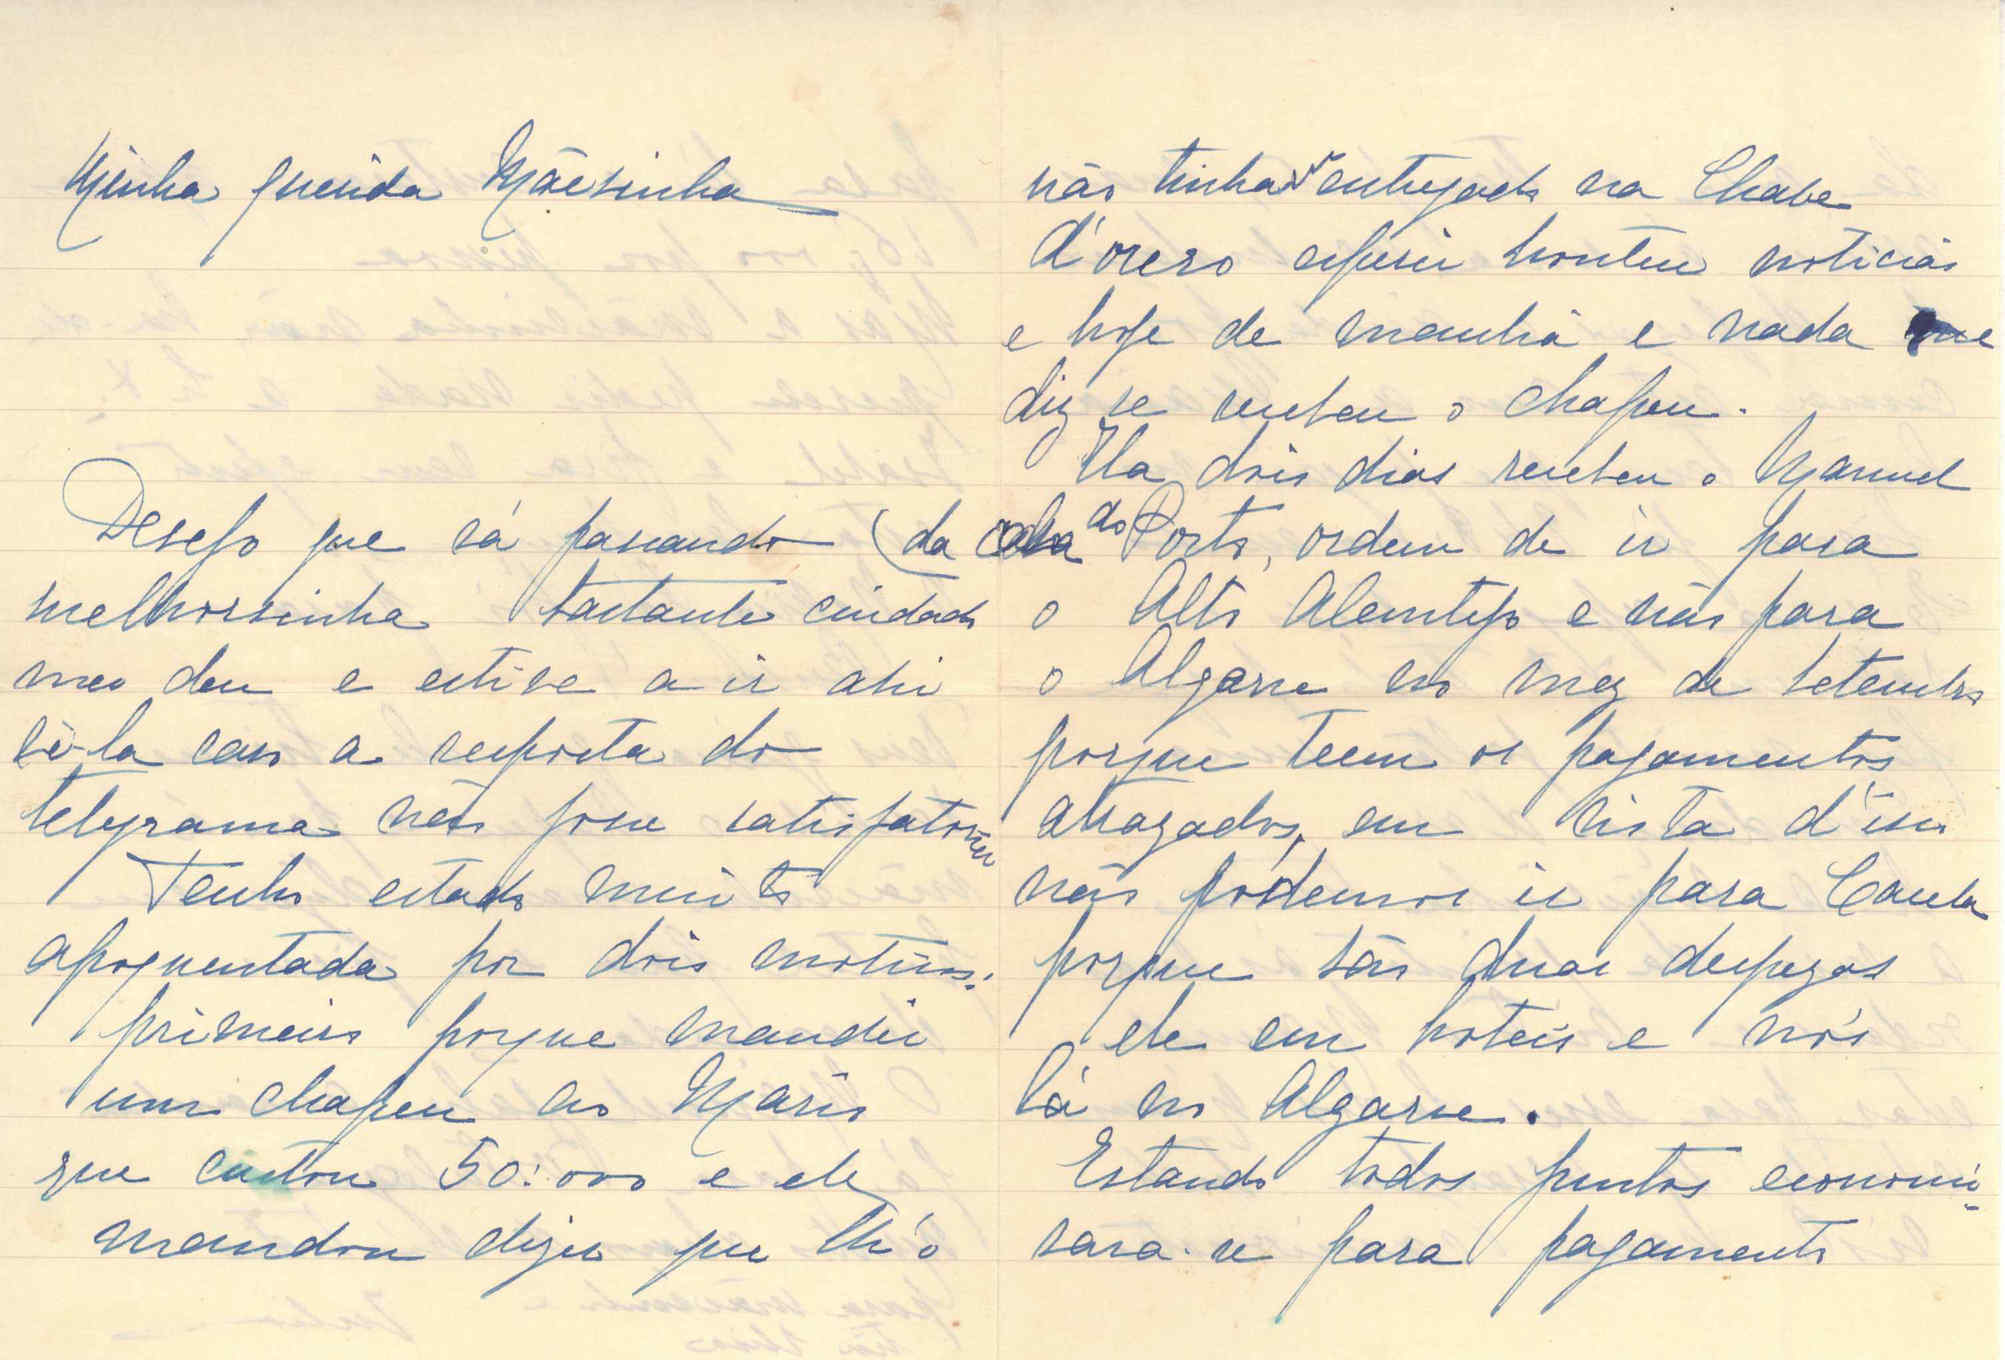 Minha querida Mãesinha
Desejo que vá passando
melhorsinha bastante cuidado
me deu e estive a ir ahi
vê-la caso a resposta do
telegrama não fosse satisfatoria
Tenho estado muito
apoquentada por dois motivos:
primeiro porque mandei
um chapeu ao Mario
que custou 50:000 e ele
mandou dizer que lh'o
não tinham entregado na Chave
d'ouro esperei hontem noticias
e hoje de manhã e nada me
diz se recebeu o chapeu.
Ha dois dias recebeu o Manuel
(da do Porto, ordem de ir para
o Alto Alemtejo e não para
o Algarve no mez de setembro
porque teem os pagamentos
atrazados, em vista d'isso
não podemos ir para Cacela
porque são duas despezas
ele em hoteis e nós
lá no Algarve.
Estando todos juntos economi-
sava-se para pagamento